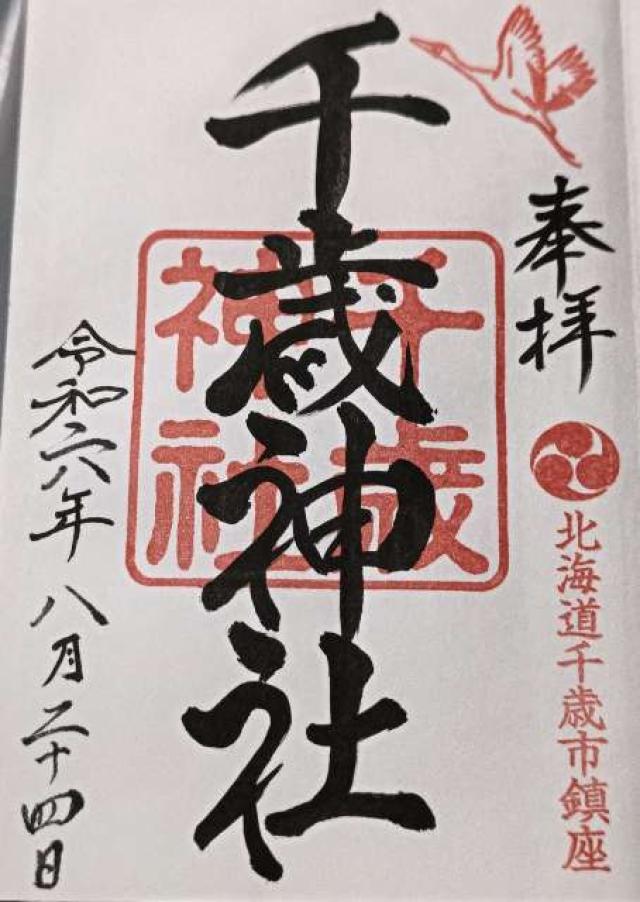 奉拝
北海道千歳市鎮座
千歳神社
千歳
神社
令和六年八月二十四日